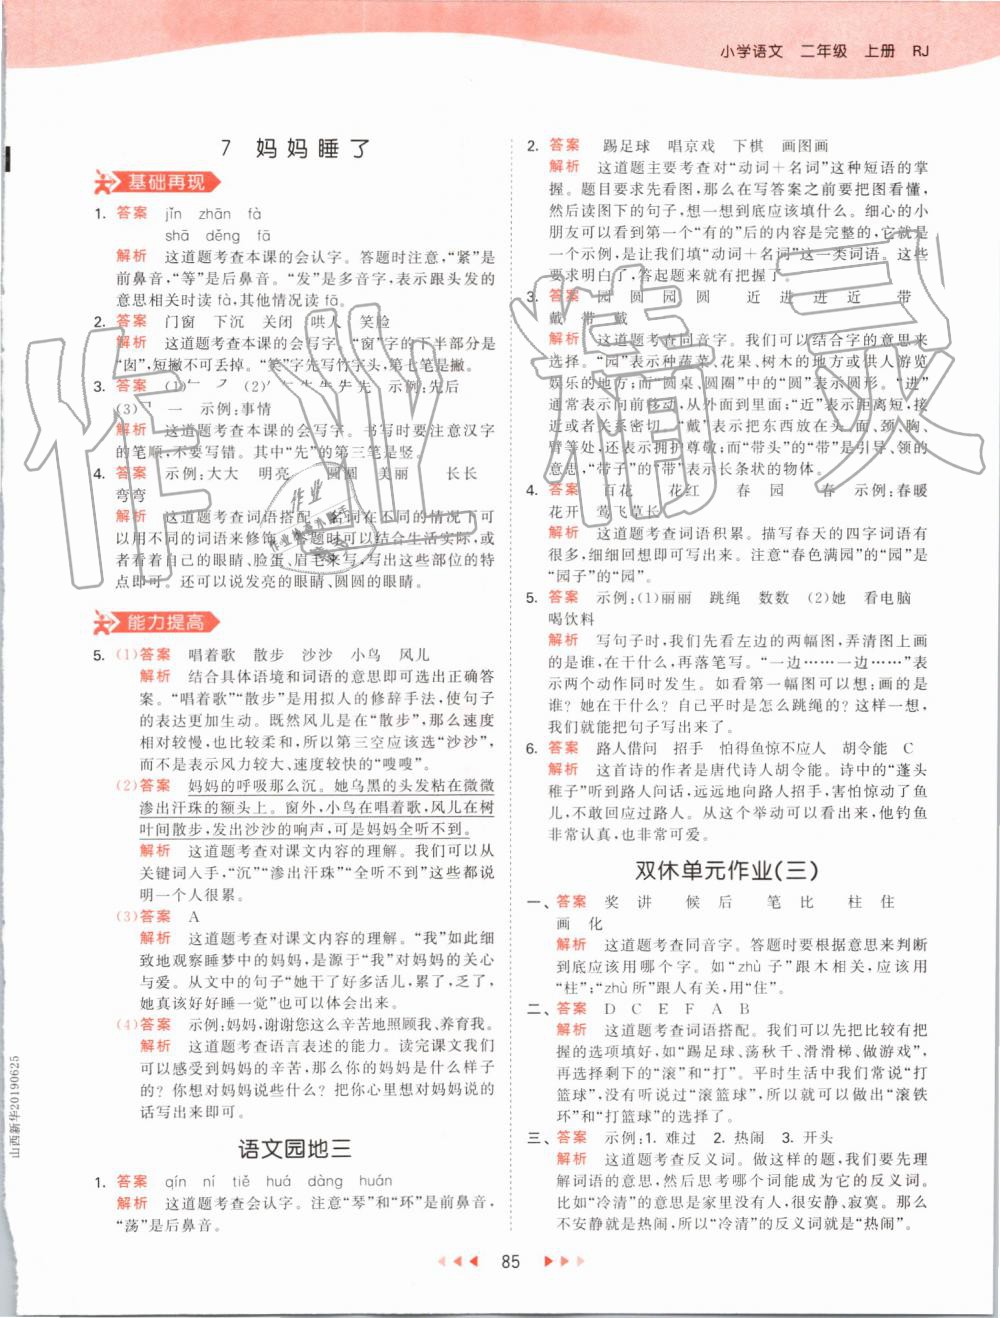 小学语文 二年级 上册 RJ
7 妈妈睡了
基础再现
1. 答案 jǐn zhān fà
shā děng fā
解析 这道题考查本课的会认字。答题时注意,“紧”是
前鼻音,“等”是后鼻音。“发”是多音字,表示跟头发的
意思相关时读 fà,其他情况读 fā。
2. 答案 门窗 下沉 关闭 哄人 笑脸
解析 这道题考查本课的会写字。“窗”字的下半部分是
“囱”,短撇不可丢掉。“笑”字先写竹字头,第七笔是撇。
3. 答案 (1) (2) 示例:先后
(3) 一 示例:事情
解析 这道题考查本课的会写字。书写时要注意汉字
的笔顺,不要写错。其中“先”的第三笔是竖。
4. 答案 示例:大大 明亮 圆圆 美丽 长长
弯弯
解析 这道题考查词语搭配。名词在不同的情况下可
以用不同的词语来修饰。答题时可以结合生活实际,或
者看着自己的眼睛、脸蛋、眉毛来写,写出这些部位的特
点即可。还可以说发亮的眼睛、圆圆的眼睛。
能力提高
5. (1)答案 唱着歌 散步 沙沙 小鸟 风儿
解析 结合具体语境和词语的意思即可选出正确答
案。“唱着歌”“散步”是用拟人的修辞手法,使句子
的表达更加生动。既然风儿是在“散步”,那么速度
相对较慢,也比较柔和,所以第三空应该选“沙沙”,
而不是表示风力较大、速度较快的“嗖嗖”。
(2)答案 妈妈的呼吸那么沉。她乌黑的头发粘在微微
渗出汗珠的额头上。窗外,小鸟在唱着歌,风儿在树
叶间散步,发出沙沙的响声,可是妈妈全听不到。
解析 这道题考查对课文内容的理解。我们可以从
关键词入手,“沉”“渗出汗珠”“全听不到”这些都说
明一个人很累。
(3)答案 A
解析 这道题考查对课文内容的理解。“我”如此细
致地观察睡梦中的妈妈,是因为“我”对妈妈的关心
与爱。从文中的句子“她干了好多活儿,累了,乏了,
她真该好好睡一觉”也可以体会出来。
(4)答案 示例:妈妈,谢谢您这么辛苦地照顾我、养育我。
解析 这道题考查语言表达的能力。读完课文我们
可以感受到妈妈的辛苦,那么你的妈妈是什么样子
的?你想对妈妈说些什么?把你心里想对妈妈说的
话写出来即可。
语文园地三
1. 答案 qín ní tiě huá dàng huán
解析 这道题考查会认字。注意“琴”和“环”是前鼻音,
“荡”是后鼻音。
2. 答案 踢足球 唱京戏 下棋 画图画
解析 这道题主要考查对“动词+名词”这种短语的掌
握。题目要求先看图,那么在写答案之前要把图看懂,
然后读图下的句子,想一想到底应该填什么。细心的小
朋友可以看到第一个“有的”后的内容是完整的,它就是
一个示例,是让我们填“动词+名词”这一类词语。这些
要求明白了,答起题来就有把握了。
3. 答案 园 圆 园 圆 近 进 进 近 带
戴 带 戴
解析 这道题考查同音字。我们可以结合字的意思来
选择。“园”表示种蔬菜、花果、树木的地方或供人游览
娱乐的地方;而“圆桌、圆圈”中的“圆”表示圆形。“进”
通常表示向前移动,从外面到里面;“近”表示距离短,接
近或者关系密切。“戴”表示把东西放在头、面、颈、胸、
臂等处,还表示拥护尊敬;而“带头”的“带”是引导、领的
意思,“带子”的“带”表示长条状的物体。
4. 答案 百花 花红 春 园 春 示例:春暖
花开 莺飞草长
解析 这道题考查词语积累。描写春天的四字词语有
很多,细细回想即可写出来。注意“春色满园”的“园”是
“园子”的“园”。
5. 答案 示例:(1)丽丽 跳绳 数数 (2)她 看电脑
喝饮料
解析 写句子时,我们先看左边的两幅图,弄清图上画
的是谁,在干什么,再落笔写。“一边……一边……”表
示两个动作同时发生。如看第一幅图可以想:画的是
谁?她在干什么?自己平时是怎么跳绳的?这样一想,
我们就能把句子写出来了。
6. 答案 路人借问 招手 怕得鱼惊不应人 胡令能 C
解析 这首诗的作者是唐代诗人胡令能。诗中的“蓬头
稚子”听到路人问话,远远地向路人招手,害怕惊动了鱼
儿,不敢回应过路人。从这个举动可以看出来,他钓鱼
非常认真,也非常可爱。
双休单元作业(三)
一、答案 奖 讲 候 后 笔 比 柱 住
画 化
解析 这道题考查同音字。答题时要根据意思来判断
到底应该用哪个字。如“zhù 子”跟木相关,应该用
“柱”;“zhù 所”跟人有关,用“住”。
二、答案 D C E F A B
解析 这道题考查词语搭配。我们可以先把比较有把
握的选项填好,如“踢足球、荡秋千、滑滑梯、做游戏”,
然后再想剩下的“滚”和“打”。平时生活中我们常说“打
篮球”,没有听说过“滚篮球”,所以就可以做出“滚铁
环”和“打篮球”的选择了。
三、答案 示例:1. 难过 2. 热闹 3. 开头
解析 这道题考查反义词。做这样的题,我们要先理
解词语的意思,然后想想哪个词能成为它的反义词。
比如“冷清”的意思是家里没有人,很安静、寂寞。那么
不安静就是热闹,所以“冷清”的反义词就是“热闹”。
85
山西新华20190625
作业精灵